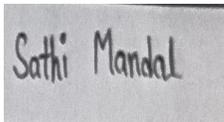 Sathi Mandal